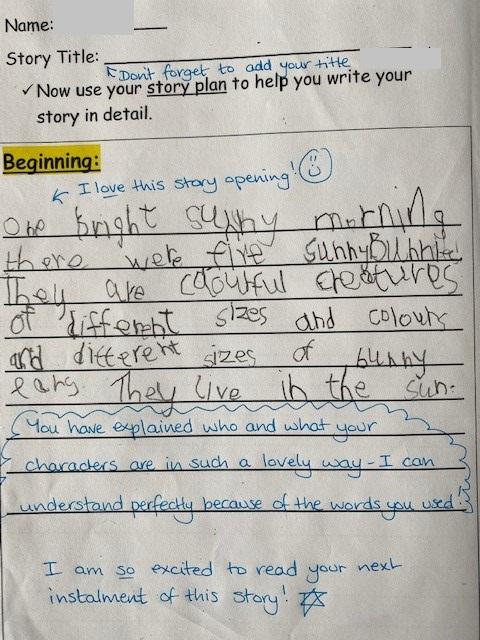 Name:
Story Title:
Don't forget to add your title
✓ Now use your story plan to help you write your
story in detail.
Beginning:
I love this story opening!
One bright sunny morning
there were five SunnyBunnies
They are colourful creatures
of different sizes and colours
and different sizes of bunny
ears. They live in the sun.
You have explained who and what your
characters are in such a lovely way - I can
understand perfectly because of the words you used!
I am so excited to read your next
instalment of this story!